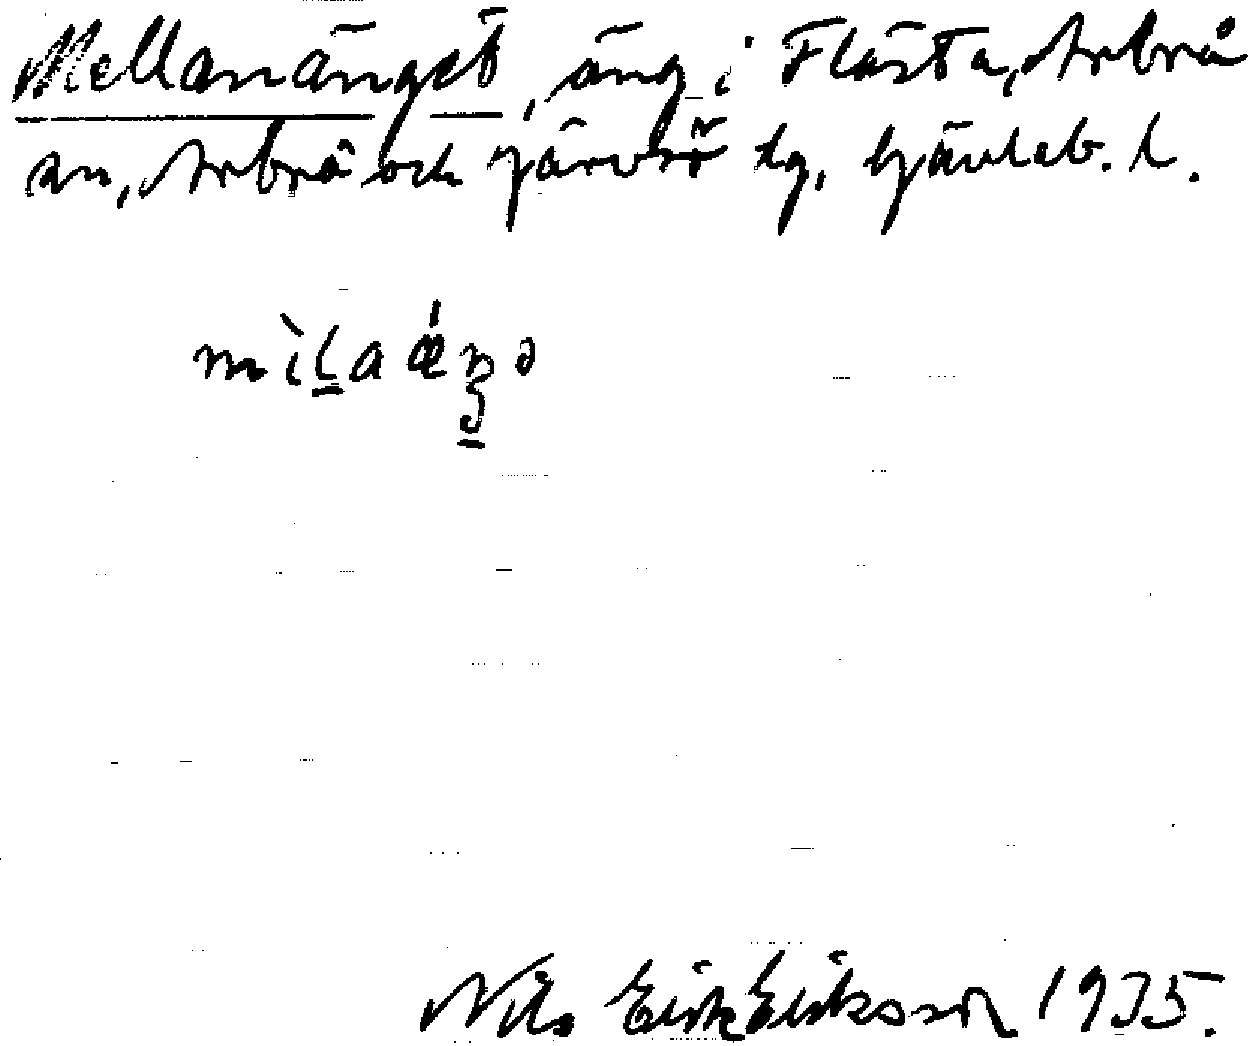 Mellanänget, äng i Flästa, Arbrå
sn, Arbrå och Järvsö tg, Gävleb. l.
mìlaǽŋə
Nils Erik Eriksson 1935.